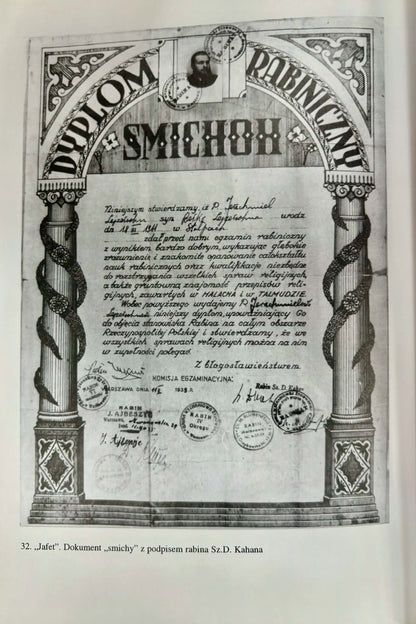 DYPLOM RABINICZNY
SMICHOH
Niniejszym stwierdzamy, iż P. Jerachmiel
syn
urodz.
dn. 18 1911 w Stołpcach
zdał przed nami egzamin rabiniczny
z wynikiem bardzo dobrym, wykazując głębokie
zrozumienie i znakomite opanowanie całokształtu
nauk rabinicznych oraz kwalifikacje niezbędne
do rozstrzygania wszelkich spraw religijnych,
a także gruntowną znajomość przepisów reli-
gijnych, zawartych w HALACHA i w TALMUDZIE.
Wobec powyższego wydajemy P.
niniejszy dyplom, upoważniający Go
do objęcia stanowiska Rabina na całym obszarze
Rzeczypospolitej Polskiej i stwierdzamy, że we
wszystkich sprawach religijnych można na nim
w zupełności polegać.
Z błogosławieństwem.
KOMISJA EGZAMINACYJNA:
WARSZAWA DNIA 193
Rabin Sz. D.
RABIN
J. AJBESZYC
Warszawa,
RABIN
IV
Okręgu
RABIN
32. „Jafet”. Dokument „smichy” z podpisem rabina Sz.D. Kahana